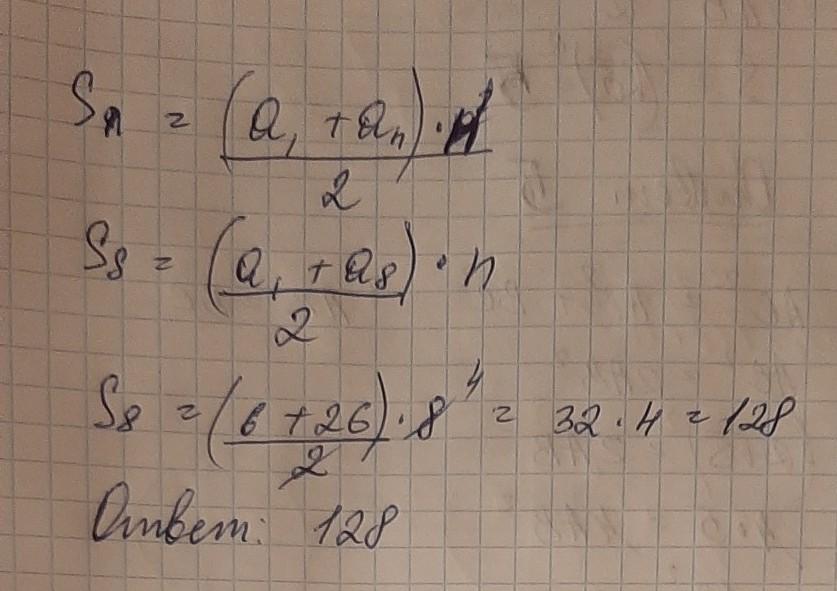 Sn = (a₁ + aₙ) · n / 2
S₈ = (a₁ + a₈) / 2 · n
S₈ = (6 + 26) / 2 · 8 4 = 32 · 4 = 128
Ответ: 128